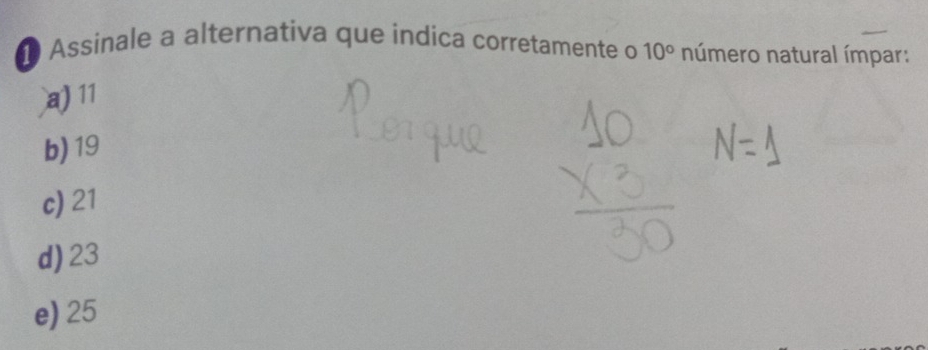 1 Assinale a alternativa que indica corretamente o 10º número natural ímpar:
a) 11
b) 19
c) 21
d) 23
e) 25
Porque
10
X 3
30
N=1